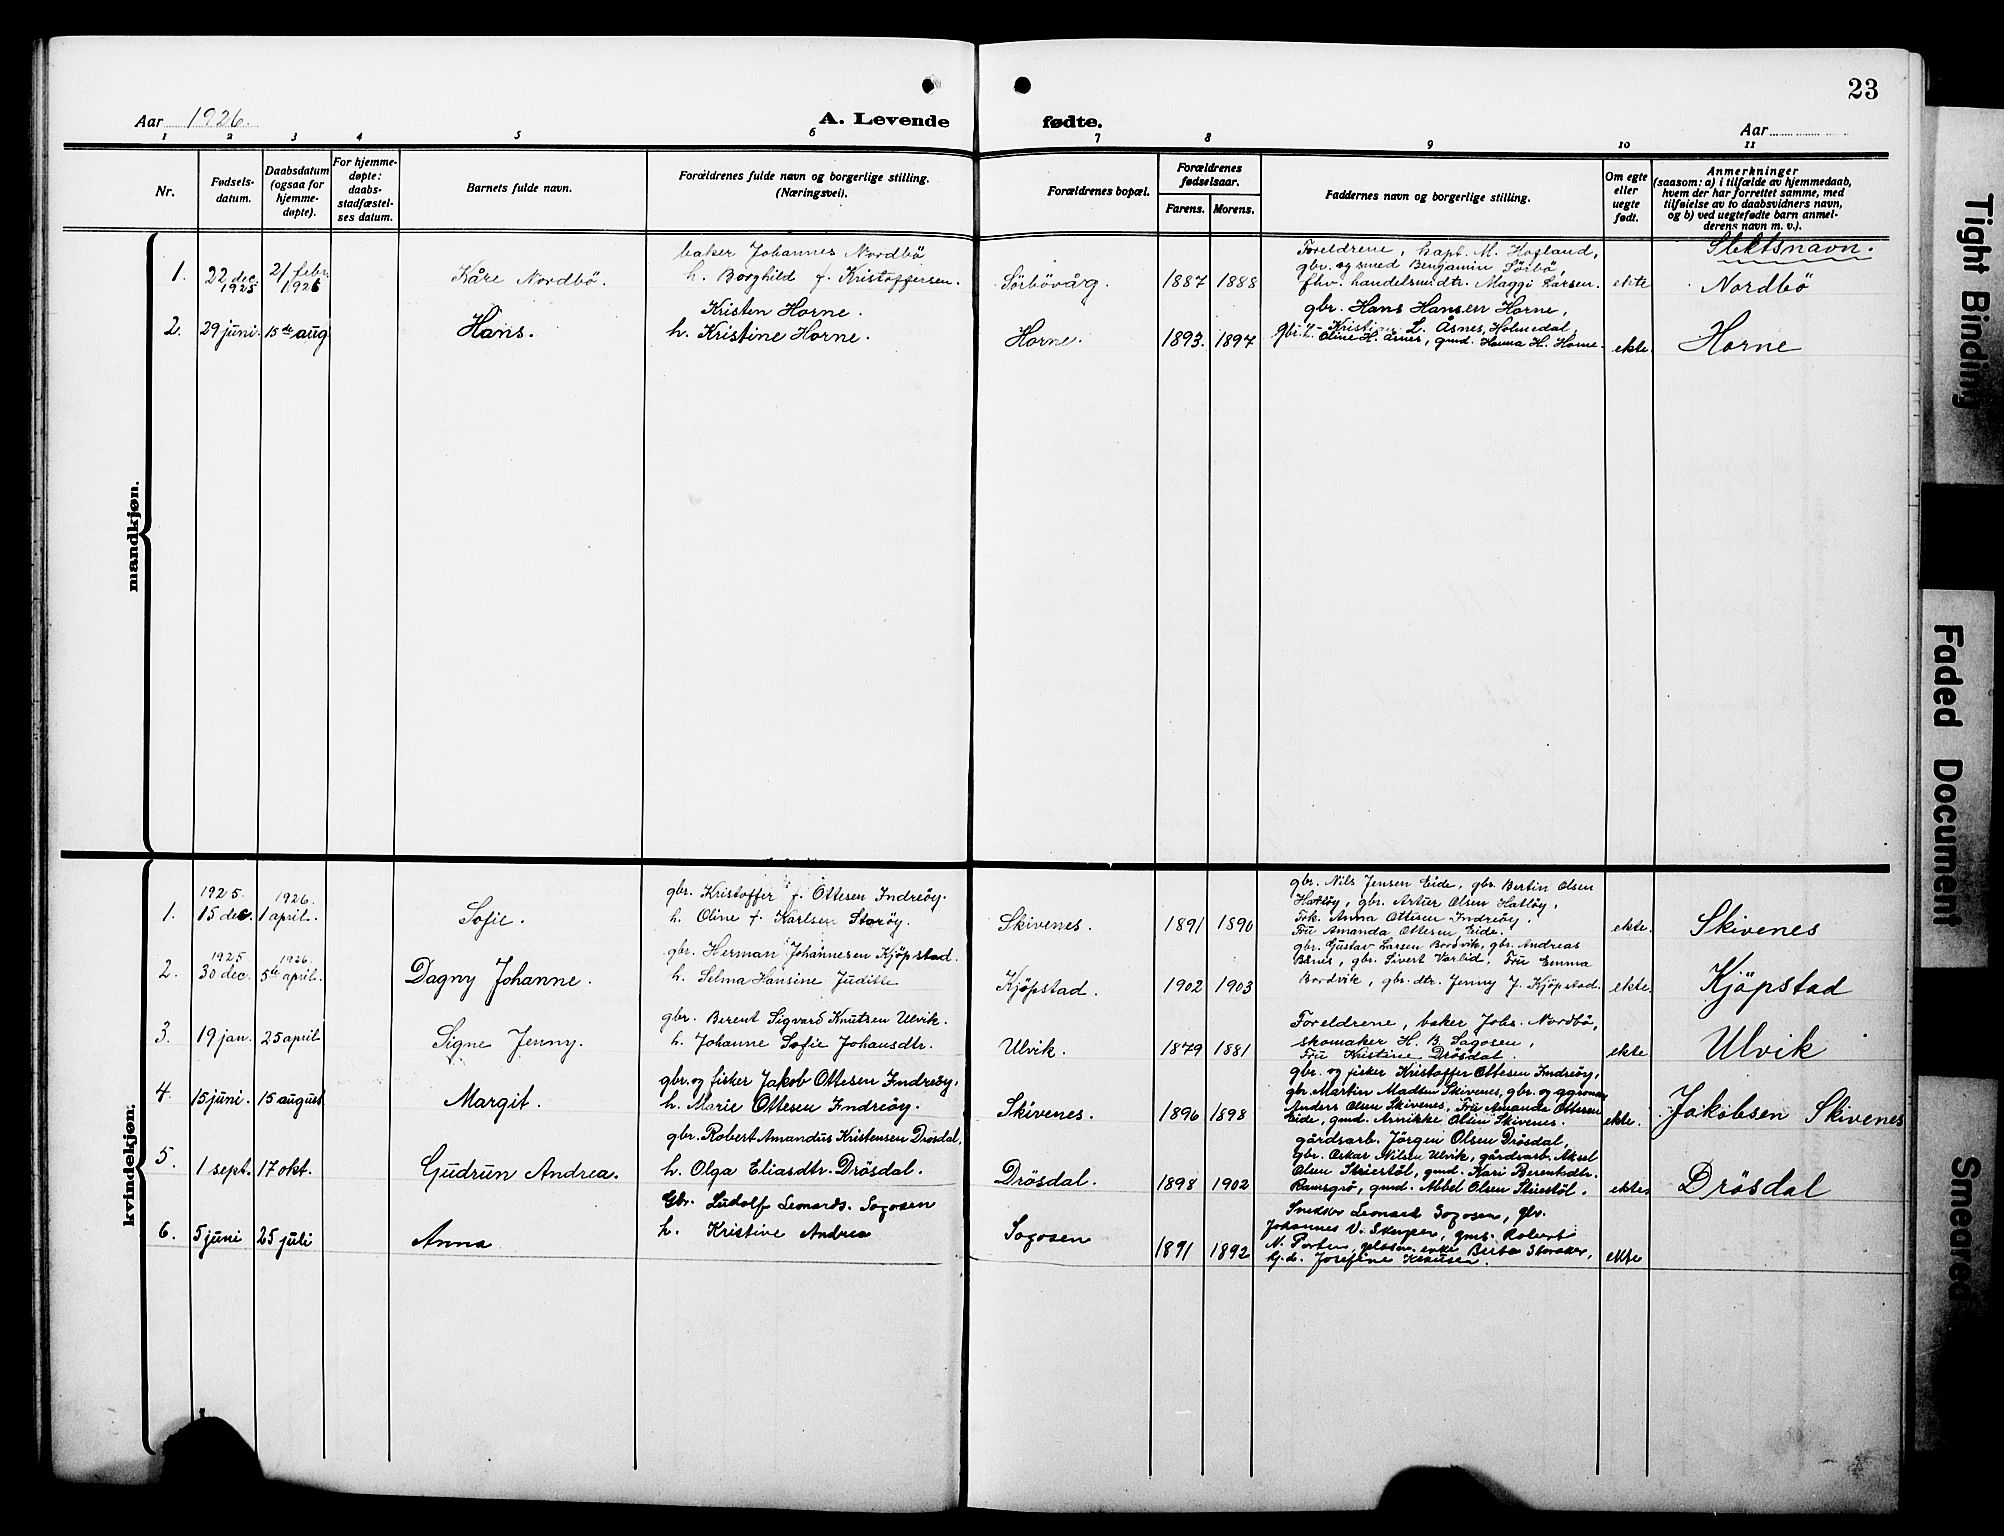 23
Aar 1926.
A. Levende fødte.
Aar
1 2 3 4 5 6 7 8 9 10 11
Nr.
Fødsels-
datum.
Daabsdatum
(ogsaa for
hjemme-
døpte).
For hjemme-
døpte:
daabs-
stadfæstel-
ses datum.
Barnets fulde navn.
Forældrenes fulde navn og borgerlige stilling.
(Næringsvei).
Forældrenes bopæl.
Forældrenes
fødselsaar.
Farens. Morens.
Faddernes navn og borgerlige stilling.
Om egte
eller
uegte
født.
Anmerkninger
(saasom: a) i tilfælde av hjemmedaab,
hvem der har forrettet samme, med
tilføielse av to daabsvidners navn,
og b) ved uegtefødte barn anmel-
derens navn m. v.).
mandkjøn.
Slektsnavn.
1. 22 dec. 1925 21 febr. 1926 Kåre Nordbö.
baker Johannes Nordbö
h. Borghild f. Kristoffersen.
Sörbövåg. 1887 1888
Foreldrene, kapt. M. Hofland,
gbr. og smed Benjamin Sörbö,
fhv. handelsmdtr. Maggi Larsen.
ekte Nordbö
2. 29 juni. 15de aug Hans.
Kristen Horne.
h. Kristine Horne.
Horne. 1893. 1897
gbr. Hans Hansen Horne,
L. Åsnes, Holmedal,
Oline H. Åsnes, gmd. Hanna H. Horne.
ekte Horne
kvindekjøn.
1. 1925. 15 dec. 1926. 1 april. Sofie.
gbr. Kristoffer f. Ottesen Indreöy.
h. Oline f. Karlsen Storöy.
Skivenes. 1891 1890
gbr. Nils Jensen Eide, gbr. Bertin Olsen
Hatlöy, gbr. Artur Olsen Hatlöy,
Frk. Anna Ottesen Indreöy.
Fru Amanda Ottesen Eide.
ekte. Skivenes
2. 1925 30 dec. 1926. 5te april. Dagny Johanne.
gbr. Herman Johannesen Kjöpstad.
h. Selma Hansine Juditte
Kjöpstad. 1902 1903
gbr. Gustav Larsen Bordvik, gbr. Andreas
gbr. Sivert Varlid, Fru Emma
Bordvik, gbr. dtr. Jenny J. Kjöpstad.
ekte. Kjöpstad
3. 19 jan. 25 april Signe Jenny.
gbr. Berent Sigvard Knutsen Ulvik.
h. Johanne Sofie Johansdtr.
Ulvik. 1879 1881
Foreldrene, baker Johs. Nordbö,
skomaker H. B. Sagosen,
Fru Kristine Drösdal.
ekte Ulvik
4. 15 juni. 15 august Margit.
gbr. og fisker Jakob Ottesen Indreöy.
h. Marie Ottesen Indreöy.
Skivenes. 1896 1898
gbr. og fisker Kristoffer Ottesen Indreöy,
gbr. Martin Madsen Skivenes, gbr. og agronom
Anders Olsen Skivenes, Fru Amanda Ottesen
Eide, gmd. Arnikke Olsen Skivenes.
ekte. Jakobsen Skivenes
5. 1 sept. 17 okt. Gudrun Andrea.
gbr. Robert Amandus Kristensen Drösdal.
h. Olga Eliasdtr. Drösdal.
Drösdal. 1898 1902
gårdsarb. Jörgen Olsen Drösdal,
gbr. Oskar Nilsen Ulvik, gårdsarb. Aksel
Olsen gmd. Kari Berentsdtr.
Ramsgrö, gmd. Abbel Olsen
ekte Drösdal
6. 5 juni 25 juli Anna
Gbr. Ludolf Leonards. Sogosen
h. Kristine Andrea
Sogosen 1891 1892
Snekker Leonard Sogosen, gbr.
Johannes V. gmd. Robert
N. Berta
Josefine
ekte
Tight Binding
Faded Document
Smeared